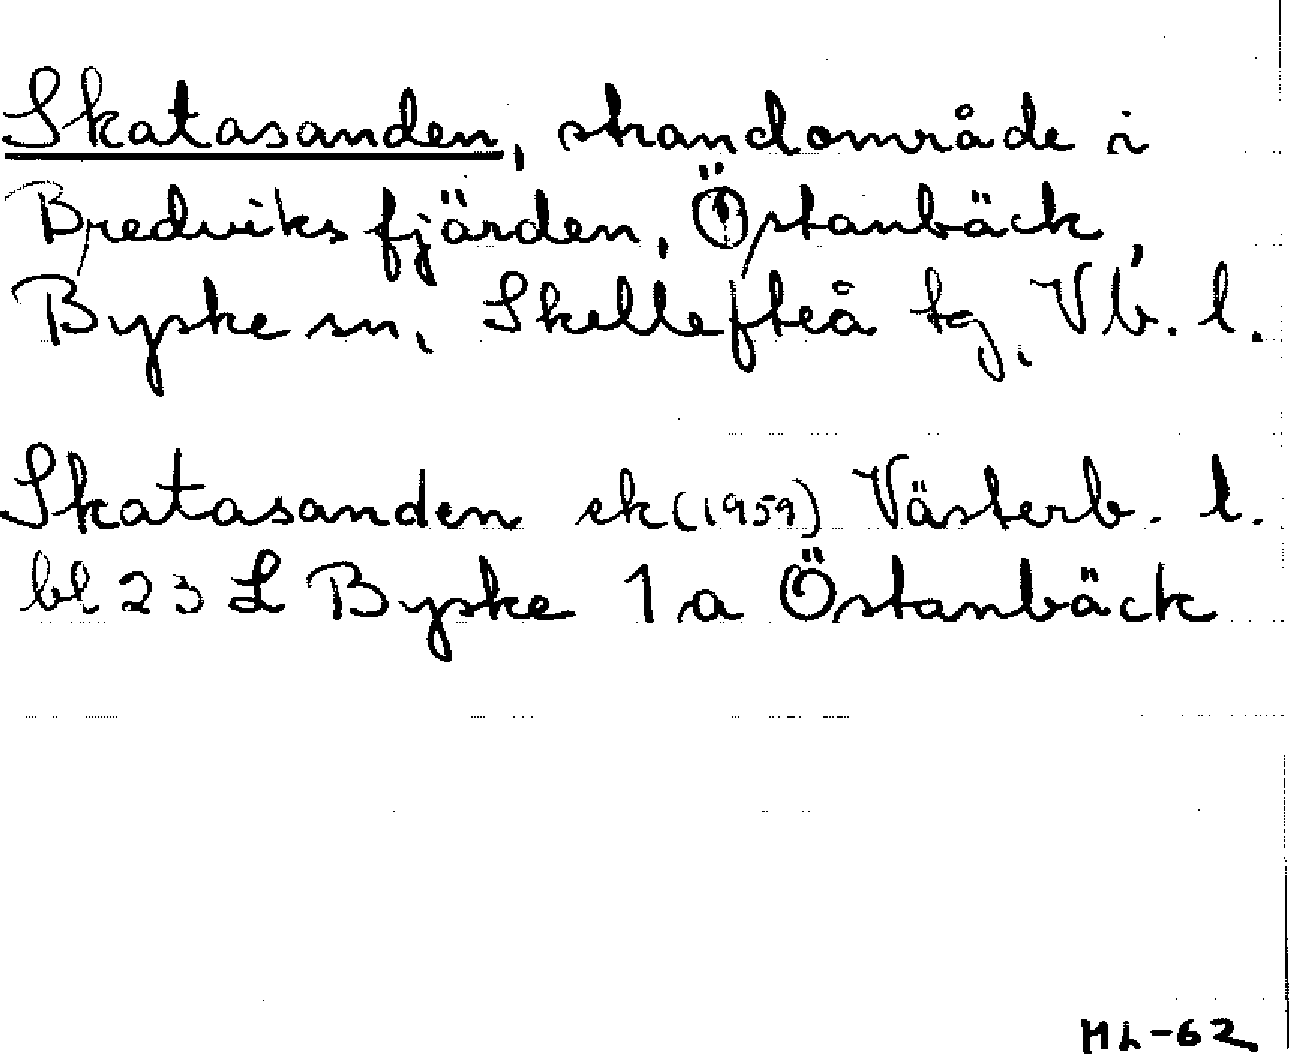 Skatasanden, strandområde i
Bredviksfjärden, Östanbäck,
Byske sn, Skellefteå tg, Vb. l.
Skatasanden ek (1959) Västerb. l.
bl 23 L Byske 1 a Östanbäck
ML-62